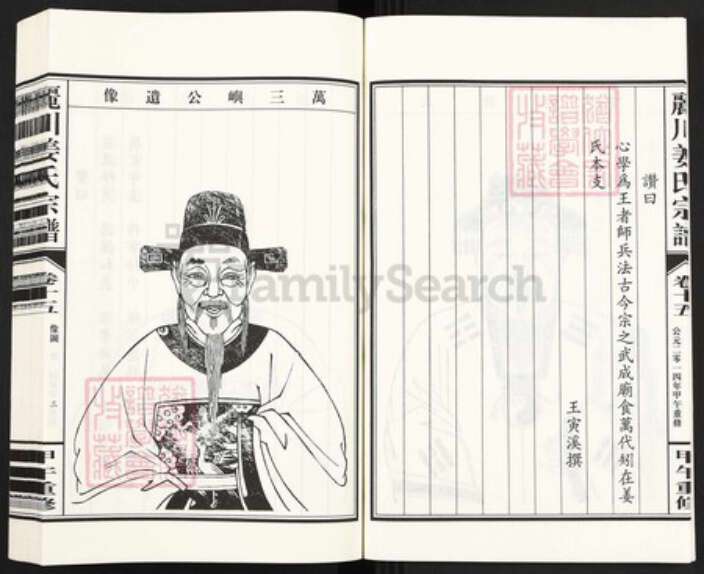 麗川姜氏宗譜
卷十五
公元二零一四年甲午重修
甲午重修
讚曰
心學為王者師兵法古今宗之武成廟食萬代綱在姜
氏本支
王寅溪撰
像遺公嶼三萬
麗川姜氏宗譜
卷十五
像圖
三
甲午重修
FamilySearch